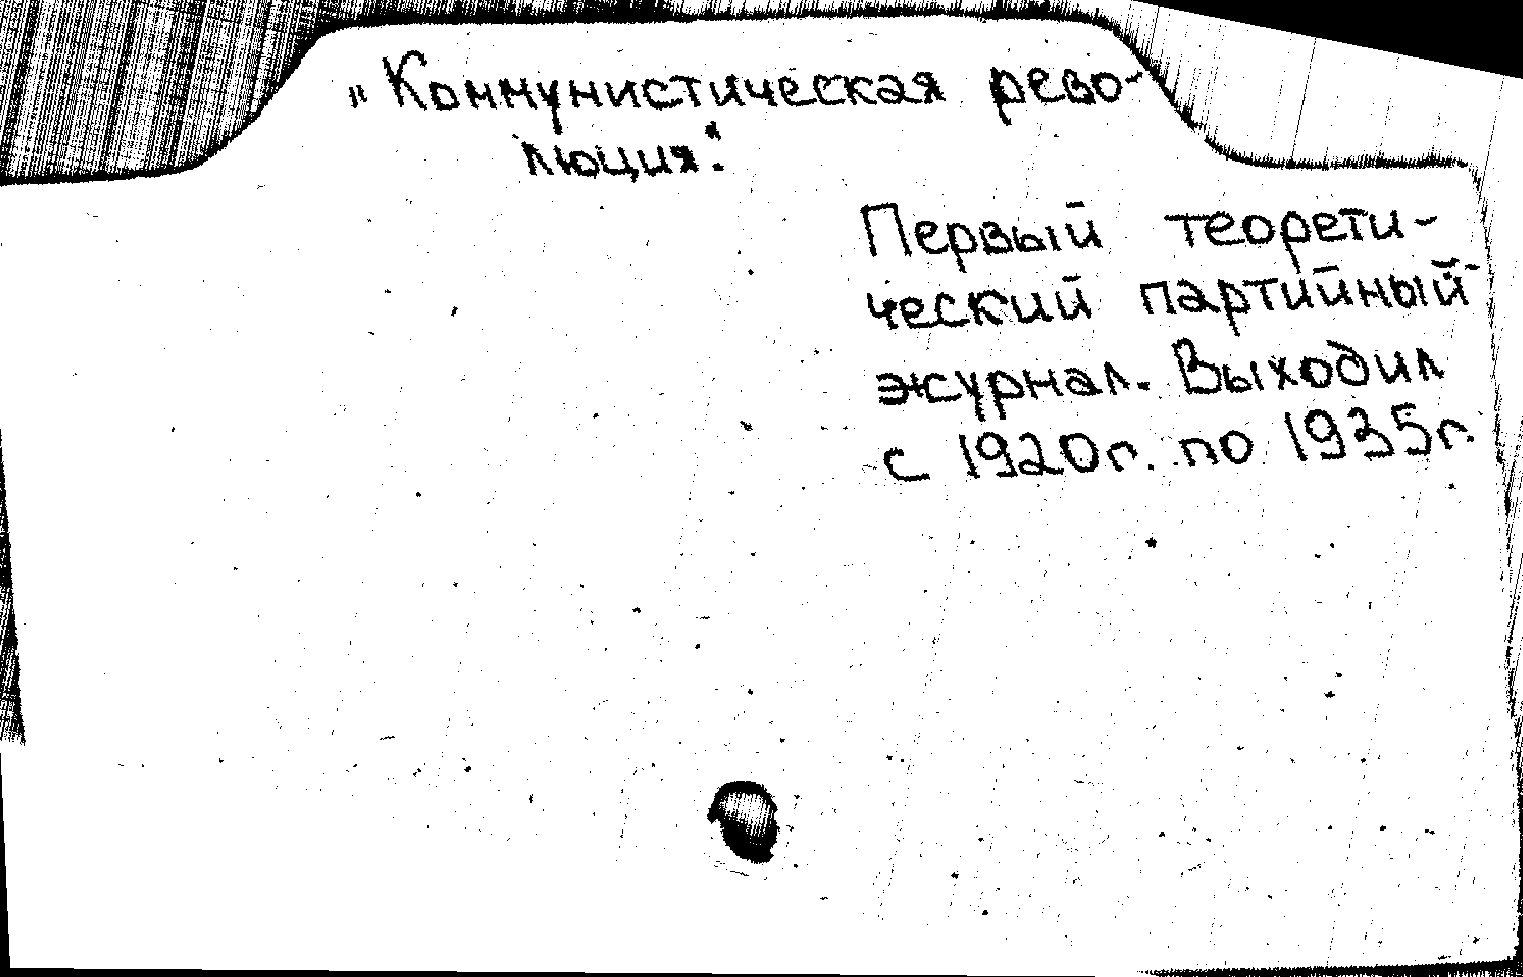 „Коммунистическая рево-
люция“.
Первый теорети-
ческий партийный
журнал. Выходил
с 1920г. по 1935г.